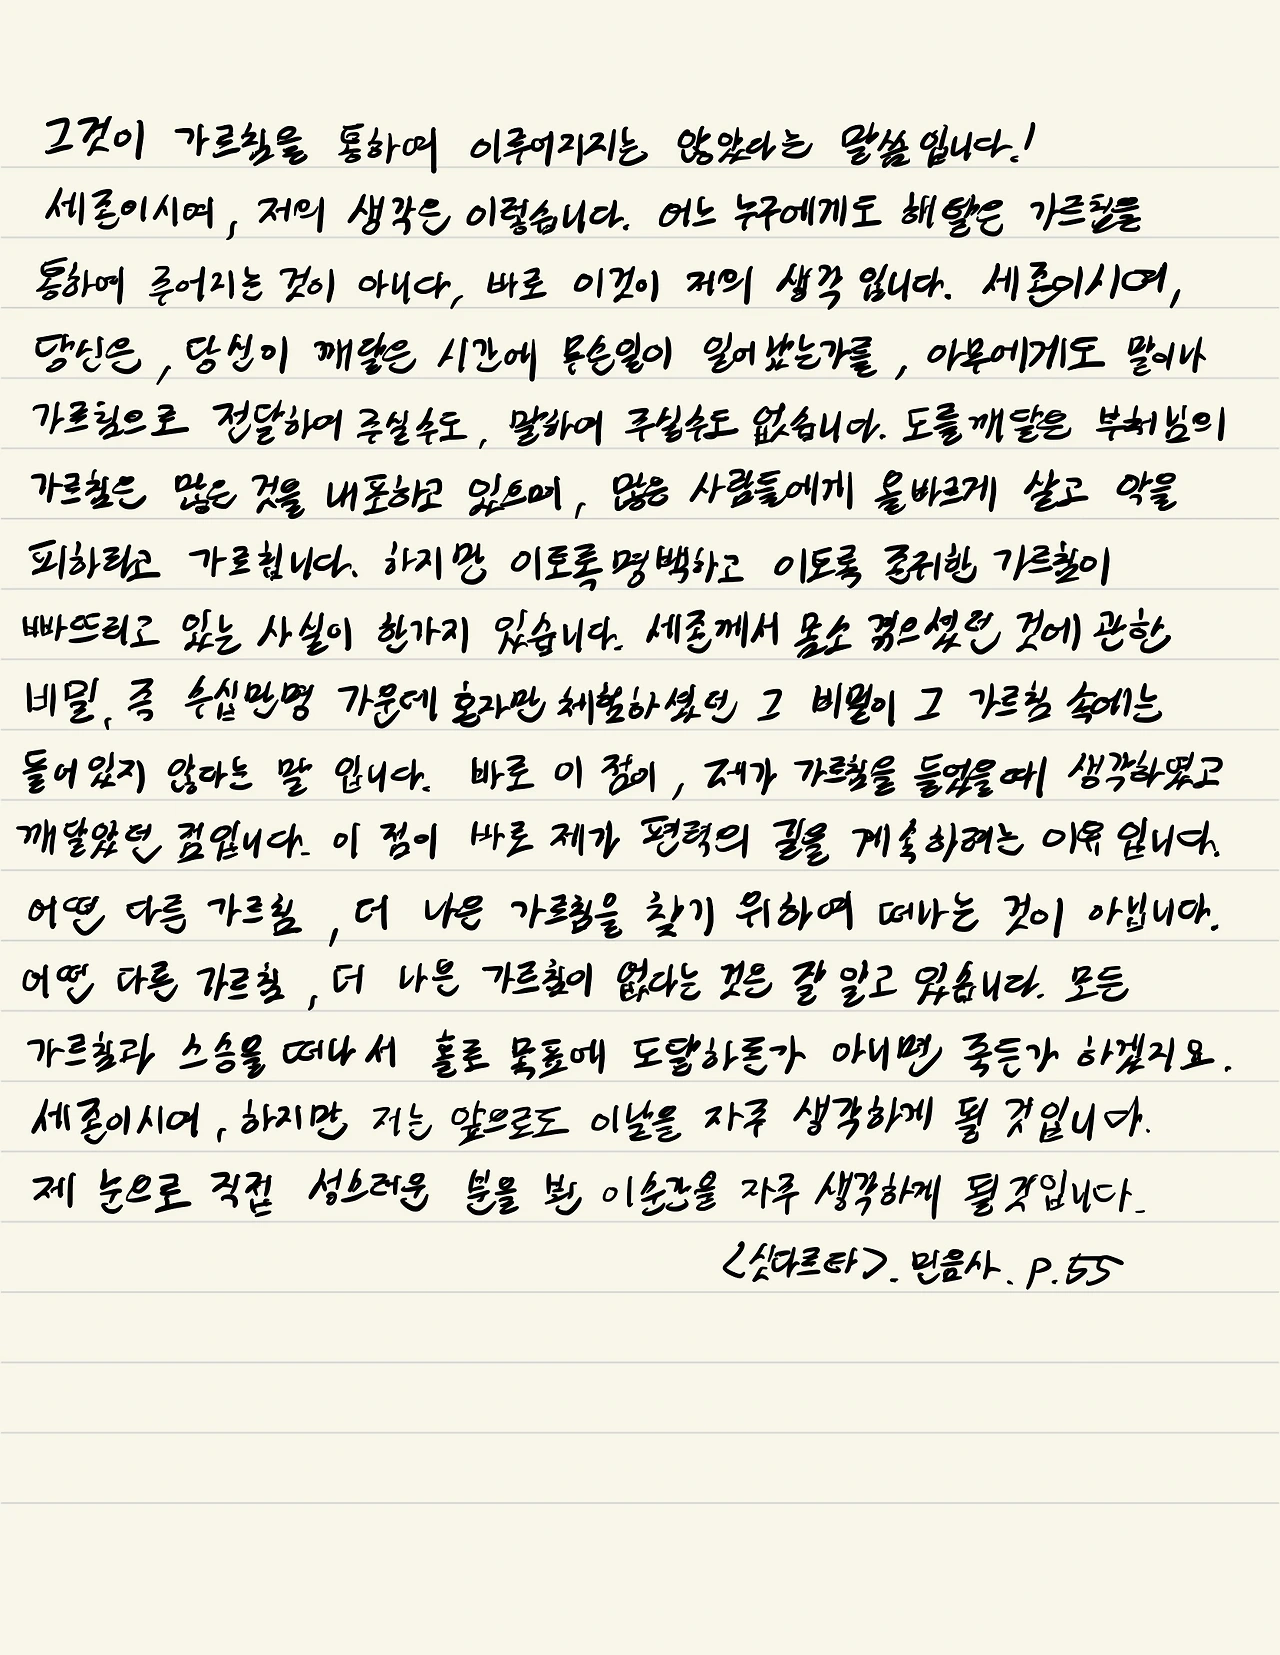 그것이 가르침을 통하여 이루어지지는 않았다는 말씀입니다!
세존이시여, 저의 생각은 이렇습니다. 어느 누구에게도 해탈은 가르침을
통하여 주어지는 것이 아니다, 바로 이것이 저의 생각 입니다. 세존이시여,
당신은, 당신이 깨달은 시간에 무슨일이 일어났는가를, 아무에게도 말이나
가르침으로 전달하여 주실수도, 말하여 주실수도 없습니다. 도를 깨달은 부처님의
가르침은 많은 것을 내포하고 있으며, 많은 사람들에게 올바르게 살고 악을
피하라고 가르칩니다. 하지만 이토록 명백하고 이토록 존귀한 가르침이
빠뜨리고 있는 사실이 한가지 있습니다. 세존께서 몸소 겪으셨던 것에 관한
비밀, 즉 수십만명 가운데 혼자만 체험하셨던 그 비밀이 그 가르침 속에는
들어있지 않다는 말 입니다. 바로 이 점이, 제가 가르침을 들었을때 생각하였고
깨달았던 점입니다. 이 점이 바로 제가 편력의 길을 계속하려는 이유 입니다.
어떤 다른 가르침, 더 나은 가르침을 찾기 위하여 떠나는 것이 아닙니다.
어떤 다른 가르침, 더 나은 가르침이 없다는 것은 잘 알고 있습니다. 모든
가르침과 스승을 떠나서 홀로 목표에 도달하든가 아니면 죽든가 하겠지요.
세존이시여, 하지만 저는 앞으로도 이날을 자주 생각하게 될 것입니다.
제 눈으로 직접 성스러운 분을 본 이순간을 자주 생각하게 될것입니다.
<싯다르타>. 민음사. p.55